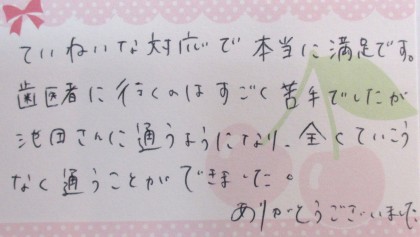 ていねいな対応で本当に満足です。
歯医者に行くのはすごく苦手でしたが
池田さんに通うようになり、全くていこう
なく通うことができました。
ありがとうございました